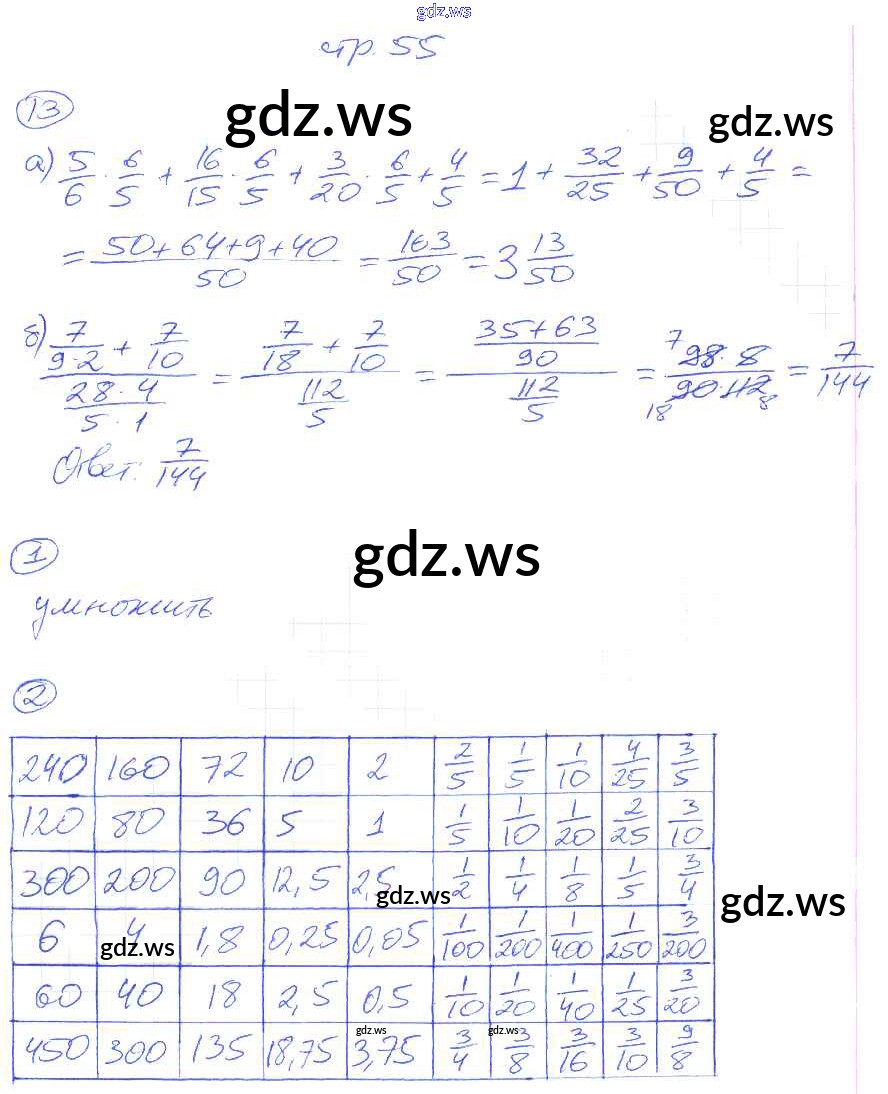 gdz.ws
стр. 55
13
gdz.ws gdz.ws
а) 5/6 · 6/5 + 16/15 · 6/5 + 3/20 · 6/5 + 4/5 = 1 + 32/25 + 9/50 + 4/5 =
= (50+64+9+40)/50 = 163/50 = 3 13/50
б) (7/(9·2) + 7/10)/((28·4)/(5·1)) = (7/18 + 7/10)/(112/5) = ((35+63)/90)/(112/5) = 7 98·8/18 90·112 8 = 7/144
Ответ: 7/144
1
gdz.ws
умножить
2
240 160 72 10 2 2/5 1/5 1/10 4/25 3/5
120 80 36 5 1 1/5 1/10 1/20 2/25 3/10
300 200 90 12,5 2,5 1/2 1/4 1/8 1/5 3/4
gdz.ws gdz.ws
6 4 1,8 0,25 0,05 1/100 1/200 1/400 1/250 3/200
gdz.ws
60 40 18 2,5 0,5 1/10 1/20 1/40 1/25 3/20
gdz.ws gdz.ws
450 300 135 18,75 3,75 3/4 3/8 3/16 3/10 9/8